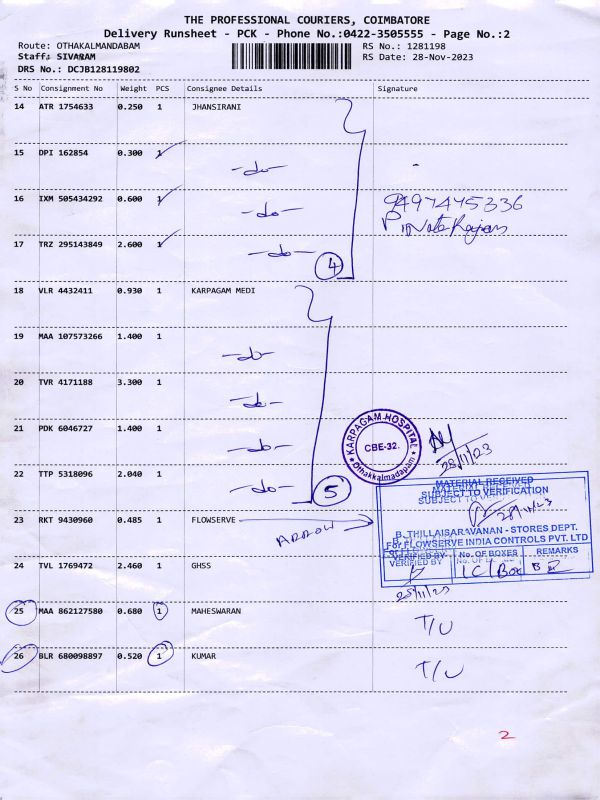 THE PROFESSIONAL COURIERS, COIMBATORE
Delivery Runsheet - PCK - Phone No.:0422-3505555 - Page No.:2
Route: OTHAKALMANDABAM RS No.: 1281198
Staff: SIVARAM RS Date: 28-Nov-2023
DRS No.: DCJB128119802
S No Consignment No Weight PCS Consignee Details Signature
14 ATR 1754633 0.250 1 JHANSIRANI
15 DPI 162854 0.300 1 -do-
16 IXM 505434292 0.600 1 -do- 9497445336
17 TRZ 295143849 2.600 1 -do- 4
18 VLR 4432411 0.930 1 KARPAGAM MEDI
19 MAA 107573266 1.400 1 -do-
20 TVR 4171188 3.300 1 -do-
21 PDK 6046727 1.400 1 -do-
KARPAGAM HOSPITAL
CBE-32.
Othakkalmadapam
28/11/23
22 TTP 5318096 2.040 1 -do- 5
MATERIAL RECEIVED
SUBJECT TO VERIFICATION
23 RKT 9430960 0.485 1 FLOWSERVE ARROW
B. THILLAISARAVANAN - STORES DEPT.
For FLOWSERVE INDIA CONTROLS PVT. LTD
VERIFIED BY No. OF BOXES REMARKS
24 TVL 1769472 2.460 1 GHSS
25 MAA 862127580 0.680 1 MAHESWARAN T/U
26 BLR 680098897 0.520 1 KUMAR T/U
2